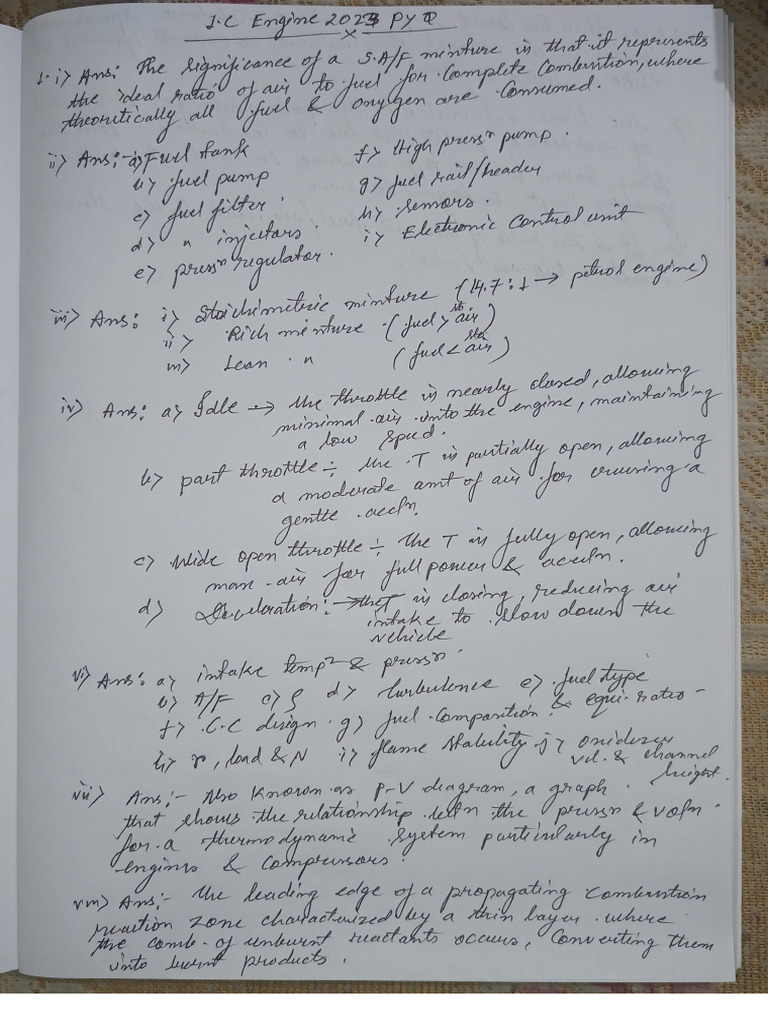 I.C Engine 2023 PYQ
1. i) Ans: The significance of a S.A/F mixture is that it represents
the ideal ratio of air to fuel for complete combustion, where
theoritically all fuel & oxygen are consumed.
ii) Ans:- a) Fuel tank f) High press^r pump.
b) fuel pump g) fuel rail/header
c) fuel filter h) sensors.
d) " injectors. i) Electronic control unit
e) press^r regulator.
iii) Ans: i) Stoichimetric mixture (14.7:1 → petrol engine)
ii) Rich mixture (fuel > air)
iii) Lean " (fuel < air)
iv) Ans: a) Idle → the throttle is nearly closed, allowing
minimal air into the engine, maintaining
a low speed.
b) part throttle ÷ the T is partially open, allowing
a moderate amt of air for cruising a
gentle accln.
c) Wide open throttle ÷ the T is fully open, allowing
max air for full power & accln.
d) Deceleration: → the T is closing, reducing air
intake to slow down the
vehicle
vi) Ans: a) intake temp^r & press^r
b) A/F c) ρ d) turbulence e) fuel type
& equi. ratio
f) C.C design g) fuel composition
h) r, load & N i) flame stability j) oxidizer
vel. & channel
height.
vii) Ans:- Also known as P-V diagram, a graph
that shows the relationship betn the press^r & voln
for a thermodynamic system particularly in
engines & compressors.
viii) Ans:- the leading edge of a propagating combustion
reaction zone characterized by a thin layer where
the comb. of unburnt reactants occurs, converting them
into burnt products.